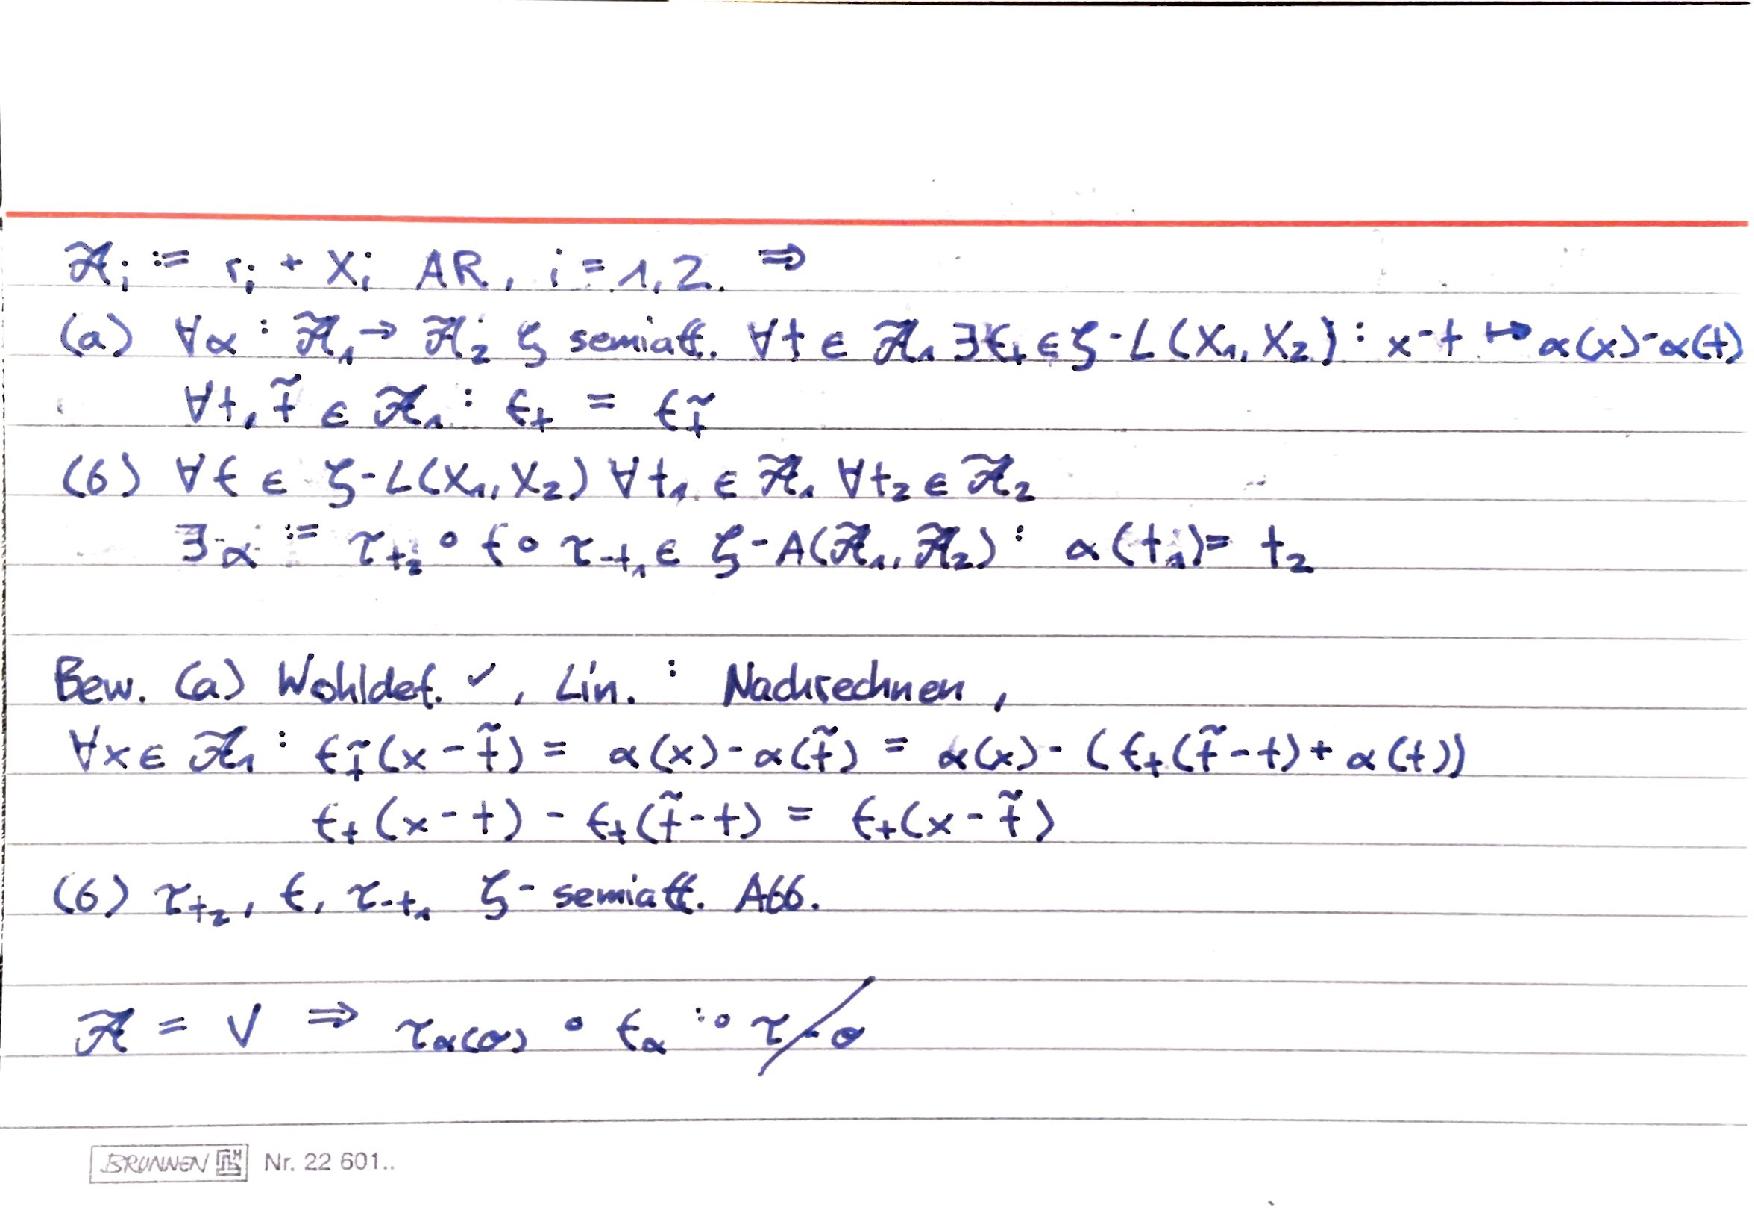 𝒜ᵢ := rᵢ + Xᵢ AR, i = 1,2. ⇒
(a) ∀α : 𝒜₁ → 𝒜₂ ζ semiaff. ∀t ∈ 𝒜₁ ∃f_t ∈ ζ-L(X₁, X₂) : x-t ↦ α(x)-α(t)
∀t, t̃ ∈ 𝒜₁ : f_t = f_t̃
(b) ∀f ∈ ζ-L(X₁, X₂) ∀t₁ ∈ 𝒜₁ ∀t₂ ∈ 𝒜₂
∃α := τ_t₂ ∘ f ∘ τ_-t₁ ∈ ζ-A(𝒜₁, 𝒜₂) : α(t₁) = t₂
Bew. (a) Wohldef. ✓, Lin. : Nachrechnen,
∀x ∈ 𝒜₁ : f_t̃(x - t̃) = α(x) - α(t̃) = α(x) - (f_t(t̃ - t) + α(t))
f_t(x - t) - f_t(t̃ - t) = f_t(x - t̃)
(b) τ_t₂, f, τ_-t₁ ζ-semiaff. Abb.
𝒜 = V ⇒ τ_α(o) ∘ f_α ∘ τ_-o
BRUNNEN Nr. 22 601..